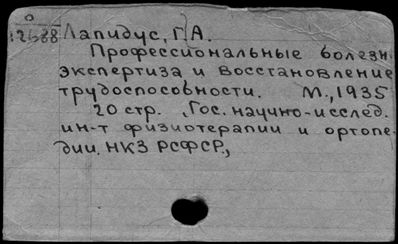 О
12688 Лапидус, Г.А.
Профессиональные болезн.
экспертиза и восстановление
трудоспособности. М., 1935
20 стр. Гос. научно-исслед.
ин-т физиотерапии и ортопе-
дии. НКЗ РСФСР.,